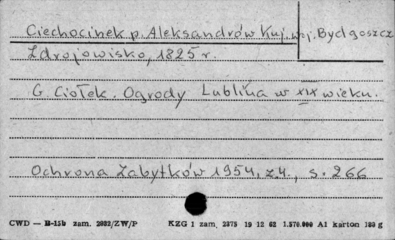 Ciechocinek p. Aleksandrów Kuj. woj. Bydgoszcz
Zdrojowisko, 1825 r.
G. Ciołek. Ogrody Lublina w XIX wieku.
Ochrona Zabytków 1954, z.4., s. 266
CWD — B-15b zam. 2082/ZW/P KZG 1 zam. 2375 19 12 62 1.570.000 A1 karton 180 g